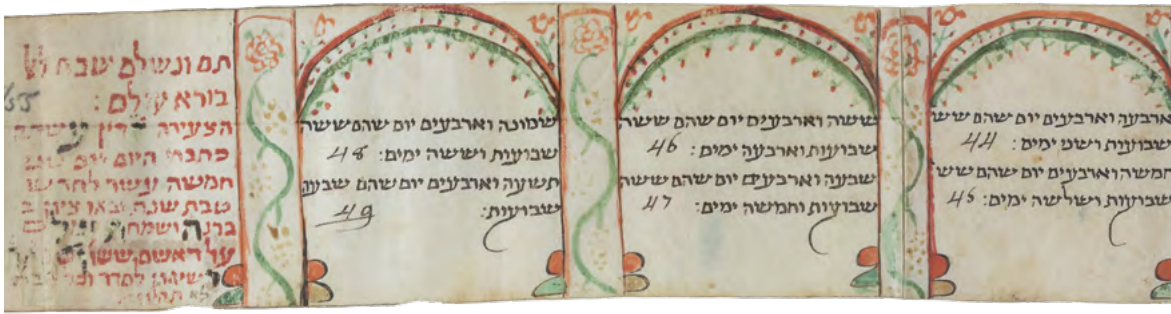 ארבעה וארבעים יום שהם שש
שבועות ושני ימים: 44
חמשה וארבעים יום שהם שש
שבועות ושלשה ימים: 45
ששה וארבעים יום שהם ששה
שבועות וארבעה ימים: 46
שבעה וארבעים יום שהם ששה
שבועות וחמשה ימים: 47
שמונה וארבעים יום שהם ששה
שבועות וששה ימים: 48
תשועה וארבעים יום שהם שבעה
שבועות: 49
תם ונשלם שבח
בורא עולם:
הצעירה
כתבתי היום יום
חמשה עשור לחדש
טבת שנה ובאו ציון
ברנה ושמחת
על ראשם ששון